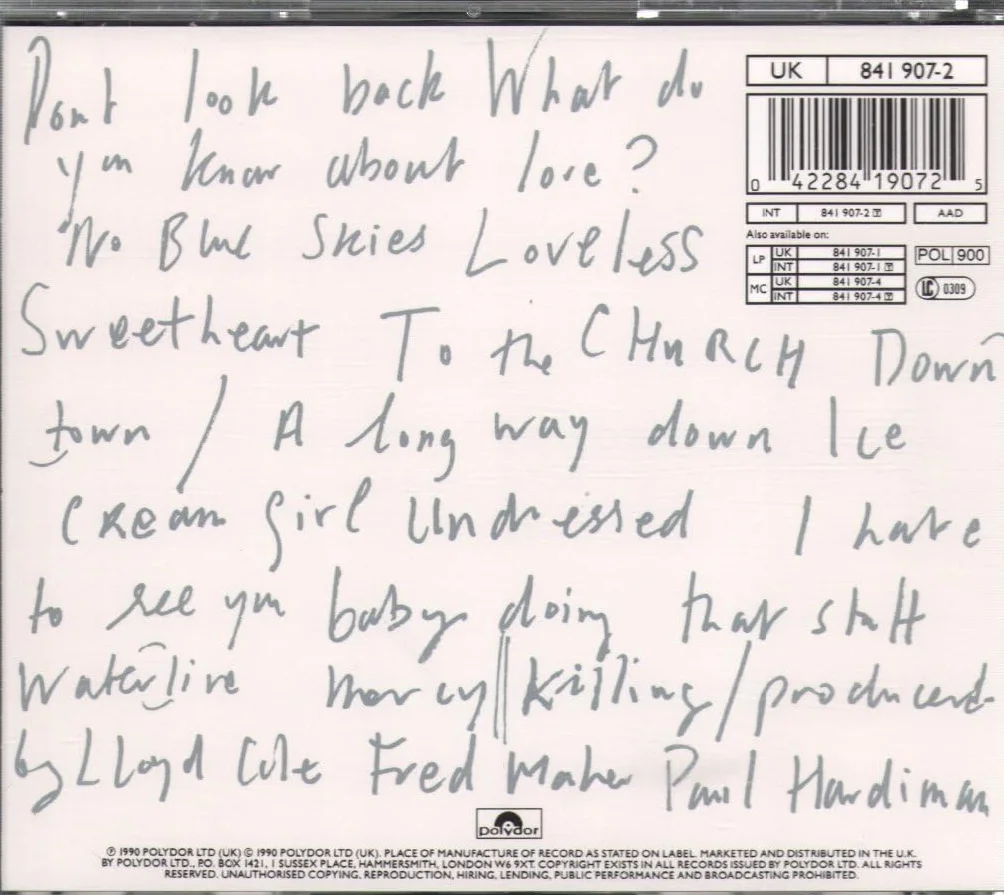 Dont look back What do
you know about love?
No Blue Skies Loveless
Sweetheart To the CHuRCH Down
town / A long way down Ice
Cream Girl Undressed I hate
to see you baby doing that stuff
Waterline Mercy || Killing / produced
by LLoyd Cole Fred Maher Paul Hardiman
UK 841 907-2
0 42284 19072 5
INT 841 907-2 Y AAD
Also available on:
LP UK 841 907-1
INT 841 907-1 Y
MC UK 841 907-4
INT 841 907-4 Y
POL 900
LC 0309
polydor
℗ 1990 POLYDOR LTD (UK) © 1990 POLYDOR LTD (UK). PLACE OF MANUFACTURE OF RECORD AS STATED ON LABEL. MARKETED AND DISTRIBUTED IN THE U.K.
BY POLYDOR LTD., P.O. BOX 1421, 1 SUSSEX PLACE, HAMMERSMITH, LONDON W6 9XT. COPYRIGHT EXISTS IN ALL RECORDS ISSUED BY POLYDOR LTD. ALL RIGHTS
RESERVED. UNAUTHORISED COPYING, REPRODUCTION, HIRING, LENDING, PUBLIC PERFORMANCE AND BROADCASTING PROHIBITED.